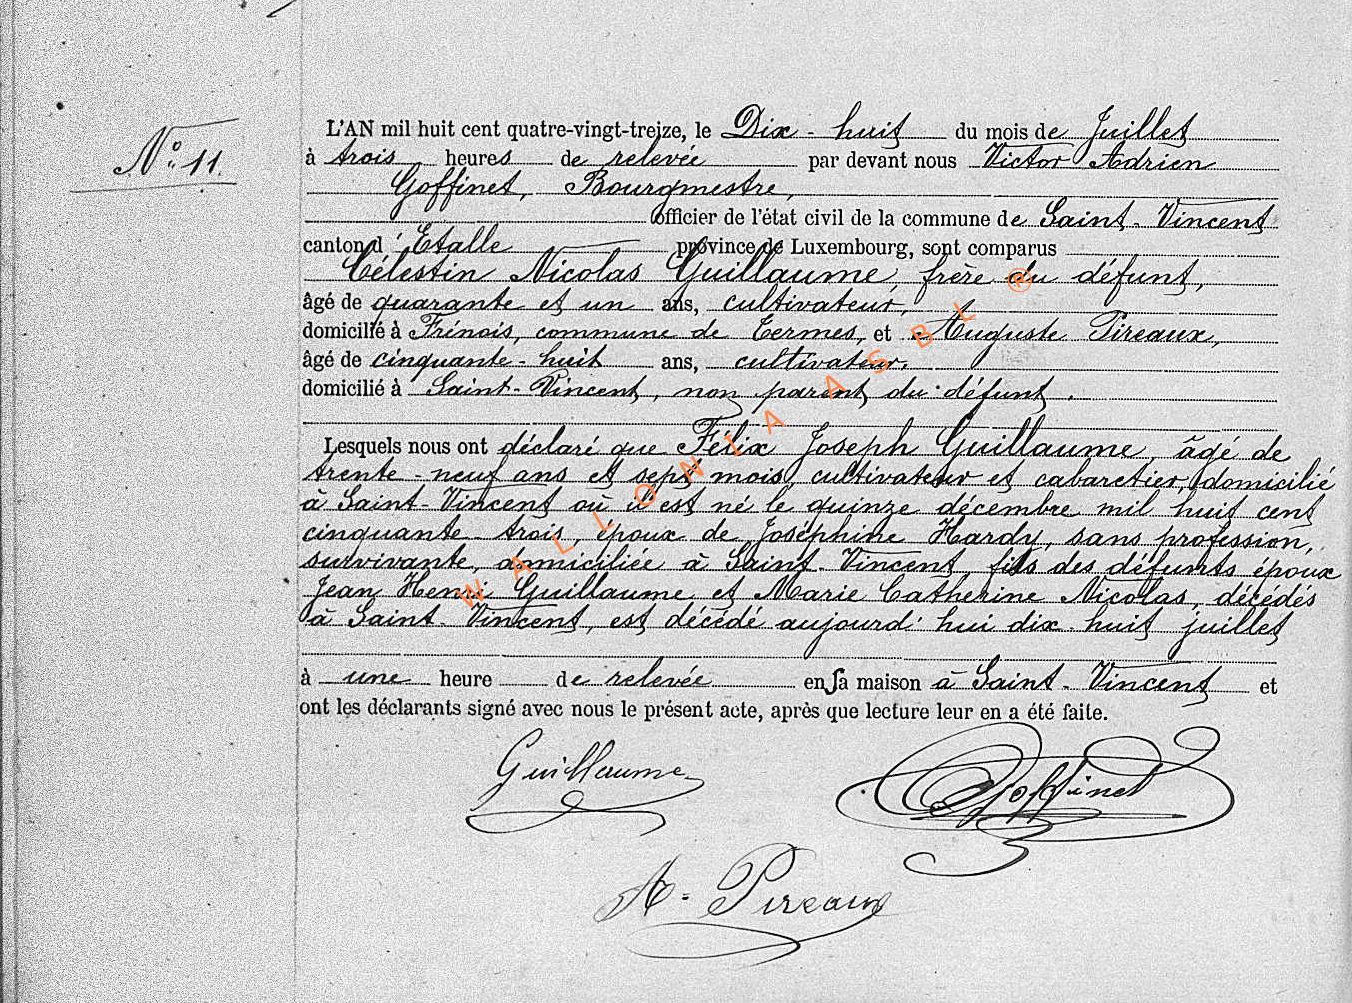 N° 11.
L'AN mil huit cent quatre-vingt-treize, le Dix-huit du mois de Juillet
à trois heures de relevée par devant nous Victor Adrien
Goffinet, Bourgmestre,
officier de l'état civil de la commune de Saint-Vincent
canton d'Etalle province de Luxembourg, sont comparus
Célestin Nicolas Guillaume, frère du défunt,
âgé de quarante et un ans, cultivateur,
domicilié à Frénois, commune de Termes, et Auguste Pireaux,
âgé de cinquante-huit ans, cultivateur,
domicilié à Saint-Vincent, non parent du défunt.
Lesquels nous ont déclaré que Félix Joseph Guillaume, âgé de
trente-neuf ans et sept mois, cultivateur et cabaretier, domicilié
à Saint-Vincent où il est né le quinze décembre mil huit cent
cinquante-trois, époux de Joséphine Hardy, sans profession,
survivante, domiciliée à Saint-Vincent, fils des défunts époux
Jean Henri Guillaume et Marie Catherine Nicolas, décédés
à Saint-Vincent, est décédé aujourd'hui dix-huit juillet
à une heure de relevée en sa maison à Saint-Vincent et
ont les déclarants signé avec nous le présent acte, après que lecture leur en a été faite.
Guillaume
Goffinet
A. Pireaux
WALLONIA ASBL ®